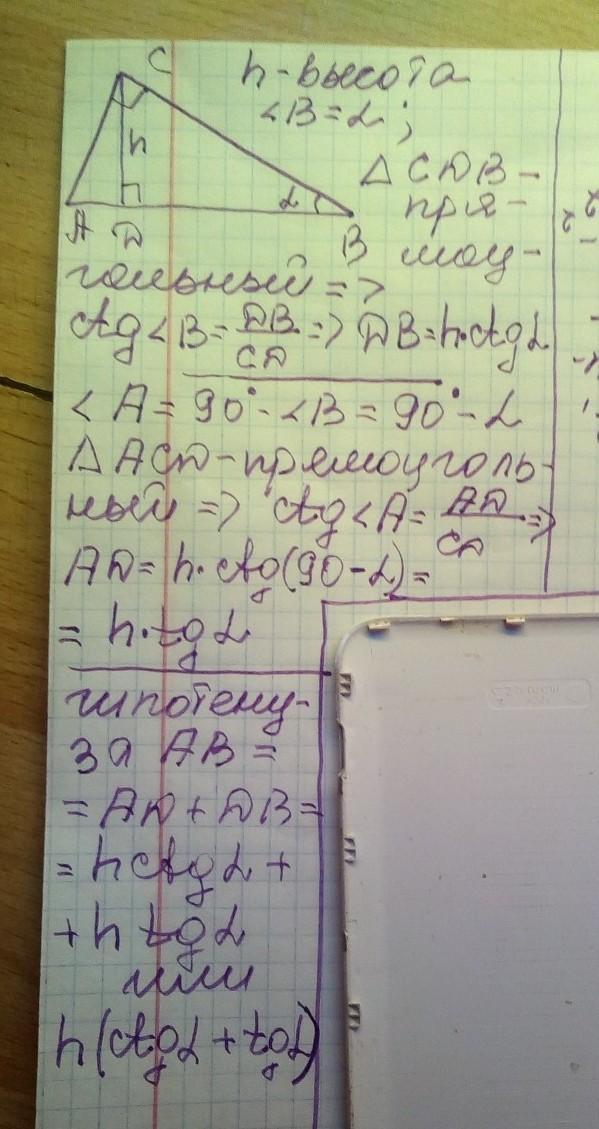 C
h
α
A D
B
h-высота
<B=α;
△CDB-
пря-
моу-
гольный =>
ctg<B=DB/CD=> DB=h·ctgα
<A=90°-<B=90°-α
△ACD-прямоуголь-
ный => ctg<A=AD/CD=>
AD=h·ctg(90-α)=
=h·tgα
гипотену-
за AB=
=AD+DB=
=hctgα+
+h tgα
или
h(ctgα+tgα)